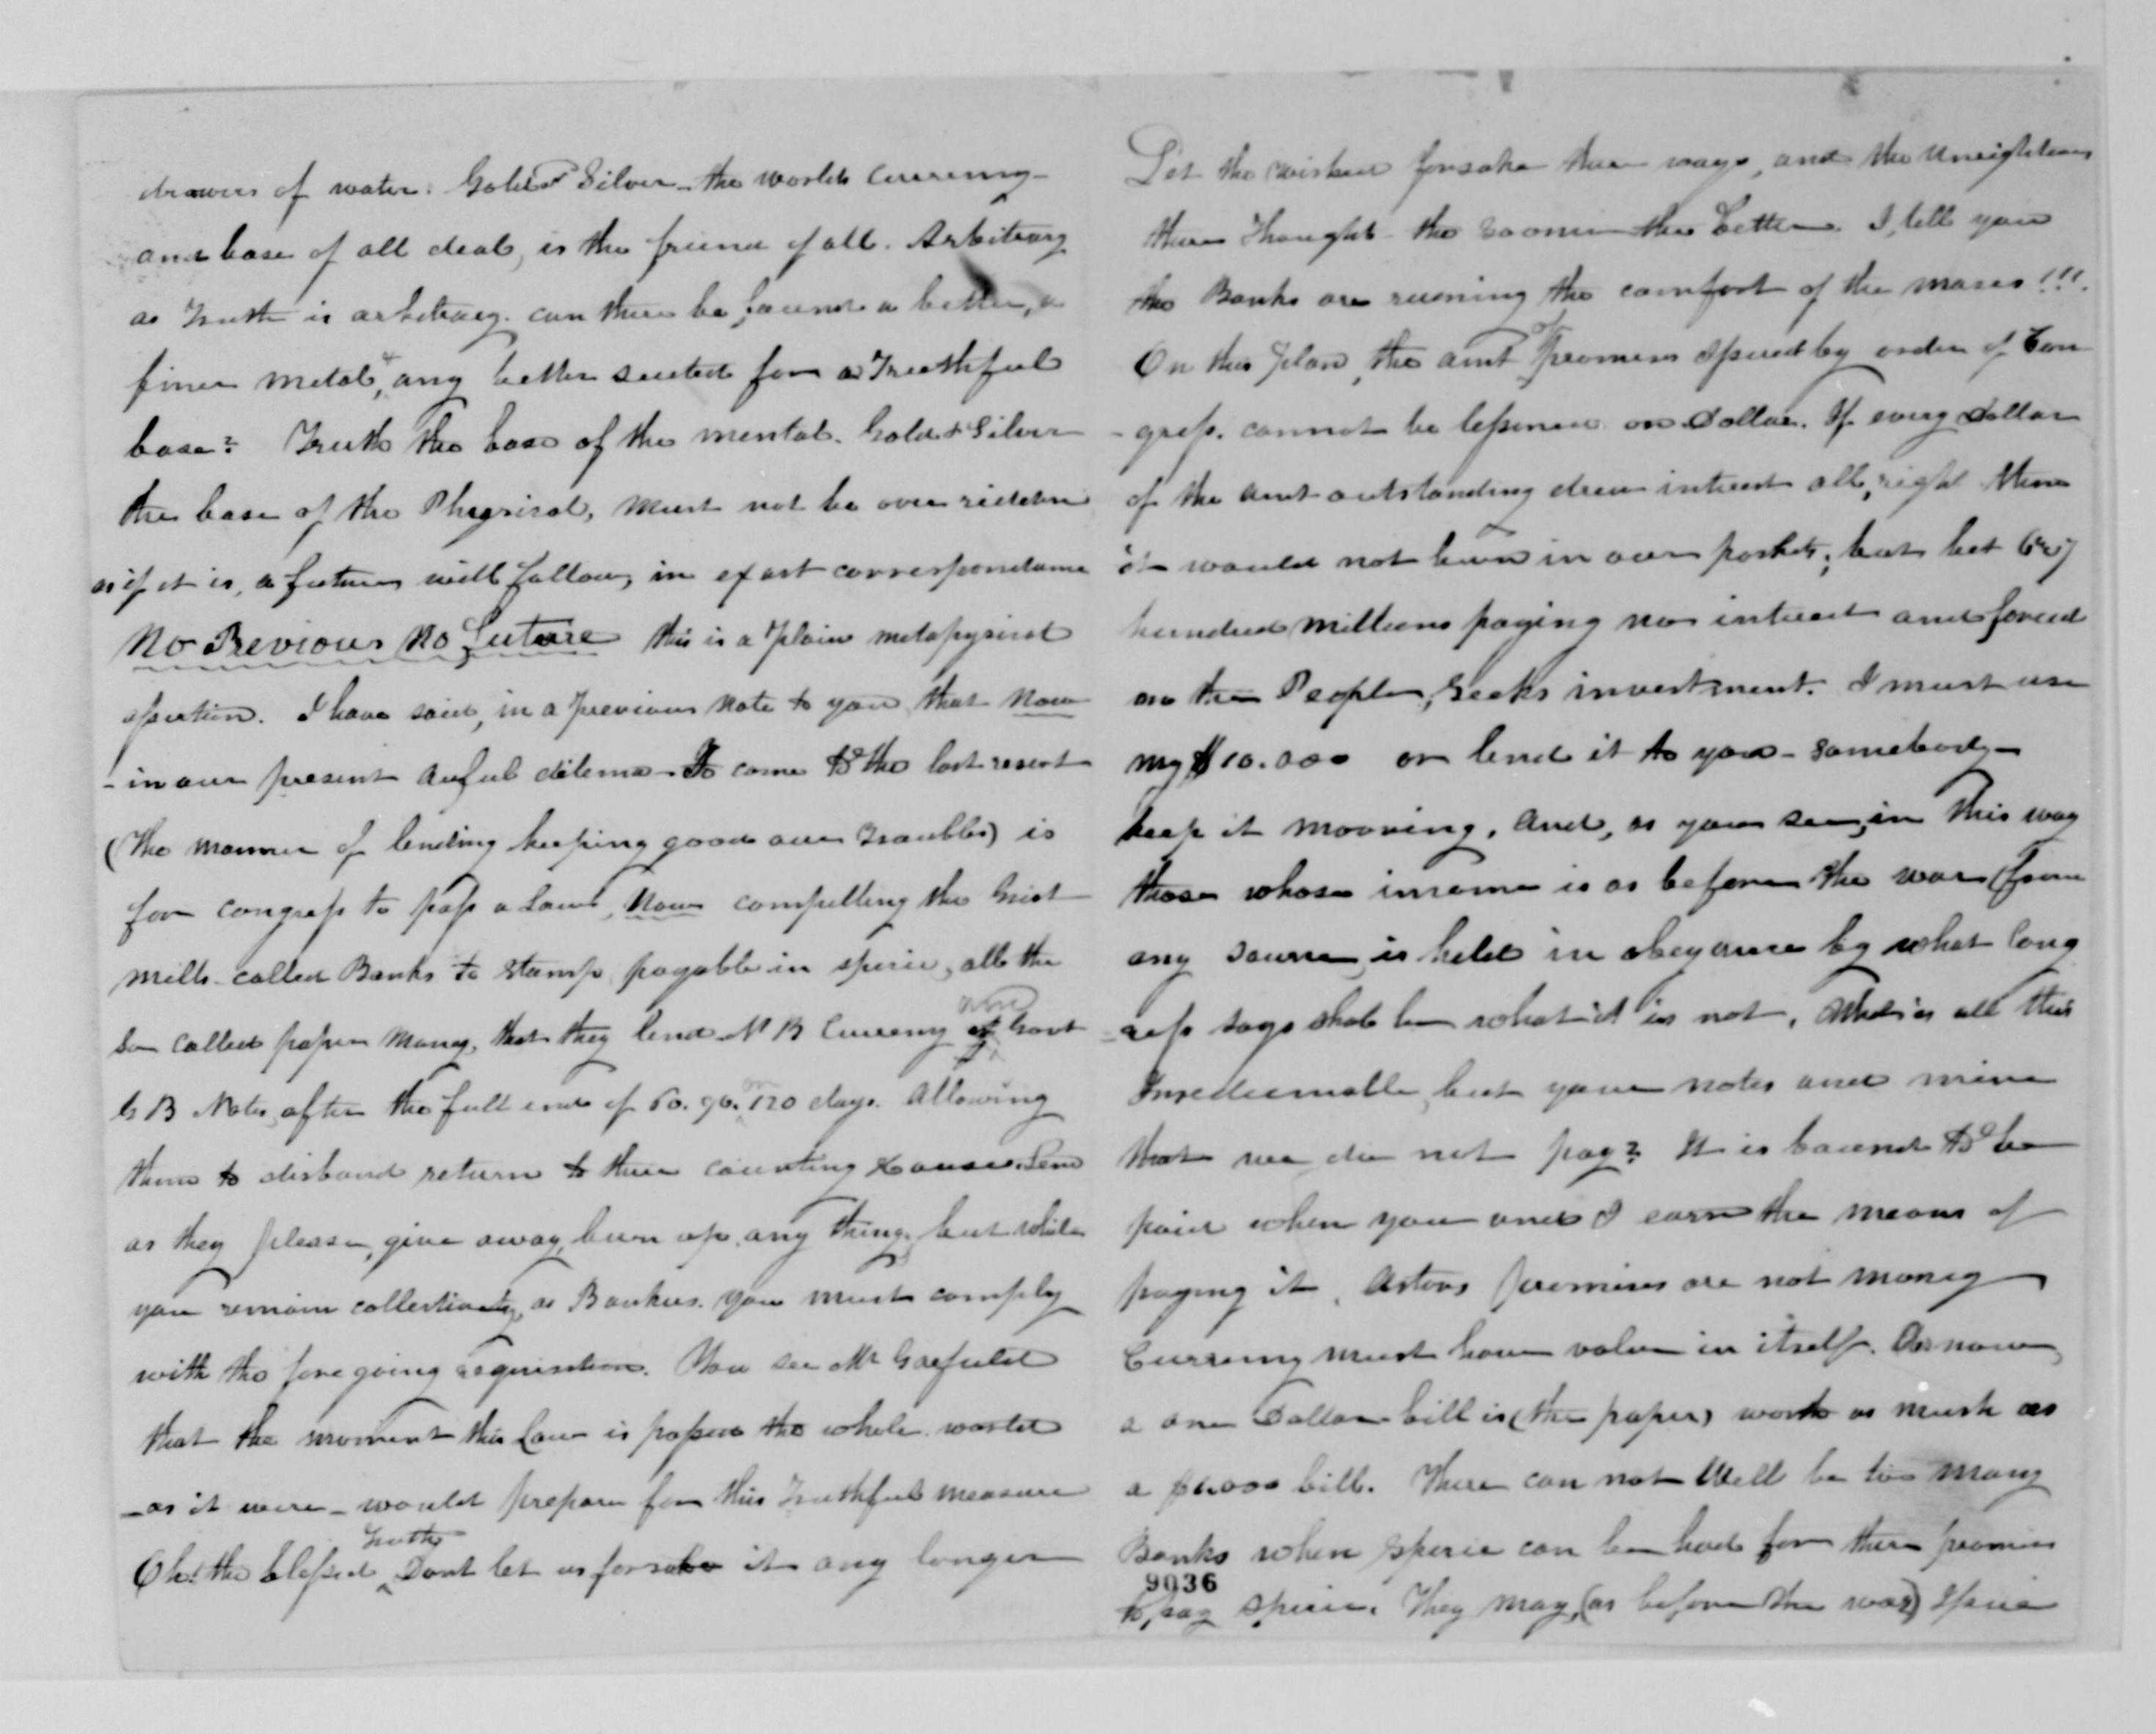 drawers of water. Gold & Silver - the worlds currency -
and base of all deal, is the friend of all. Arbitrary
as Truth is arbitrary. can there be found a better, a
finer metal, & any better suited for a Truthful
base? Truth the base of the mental. Gold & Silver
the base of the Physical, must not be over ridden
as if it is, a future will follow, in exact correspondence
No Previous No Future this is a plain metapysical
assertion. I have said, in a previous note to you that Now
- in our present awful dilema - To come to the last resort
(the manner of lending keeping good our Troubles) is
for congress to pass a Law, Now compelling the Grist
mills - called Banks to stamp, payable in specie, all the
so called paper money, that they lend N B Currency and Govt
G B Notes, after the full end of 60. 90. or 120 days. Allowing
them to disband return to their counting House. Lend
as they please, give away, burn up, any thing, but while
you remain collectively, as Bankers. you must comply
with the foregoing requisition. You see Mr Garfield
that the moment this Law is passed the whole world
- as it were - would prepare for this Truthful measure
Oh! the blessed Truth Dont let us forsake it any longer
Let the wicked forsake their ways, and the unrighteous
their Thought the sooner the better. I, tell you
the Banks are ruening the comfort of the masses!!!.
On this plan, the amt of promises issued by order of Con
-gress. cannot be lessened one Dollar. If every dollar
of the amt outstanding drew interest all, right then
it would not burn in our pockets; but let
hundred millions paying no interest and forced
on the People, seeks investment. I must use
my $10.000 or lend it to you - somebody -
keep it mooving. And, as you see, in this way
those whose income is as before the war (from
any source, is held in abeyance by what Cong
-ress says shall be what it is not. What is all this
Irredeemable, but your notes and mine
that we do not pay? It is bound to be
paid when you and I earn the means of
paying it. Astors promises are not money
Currency must have value in itself. As now,
a one Dollar bill is (the paper) worth as much as
a $1.000 bill. There can not Well be too many
Banks when specie can be had for their promises
9036
to, pay specie. They may, (as before the war) issue